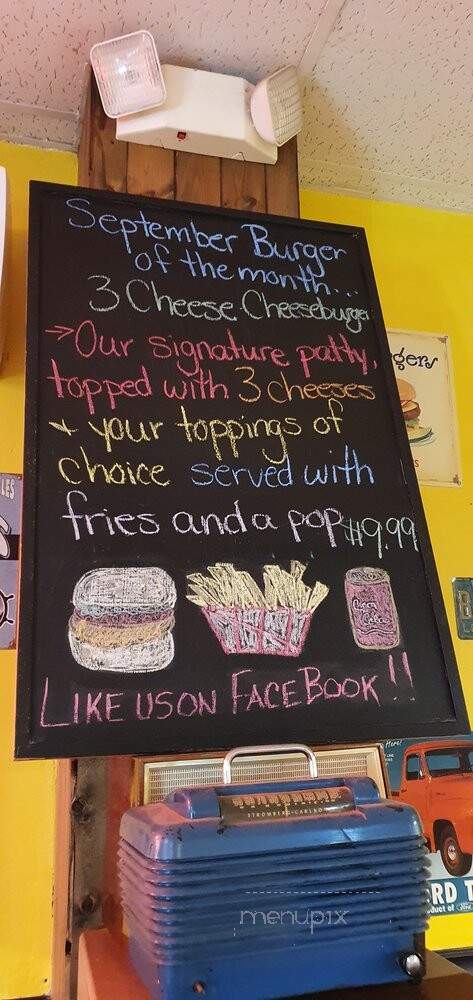 September Burger
of the month...
3 Cheese Cheeseburger
→Our signature patty,
topped with 3 cheeses
+ your toppings of
choice served with
fries and a pop $9.99
Coca
Cola
LIKE US ON FACEBOOK!!
gers
LES
STROMBERG-CARLSON
Here!
RD T
duct of Ford
menupix